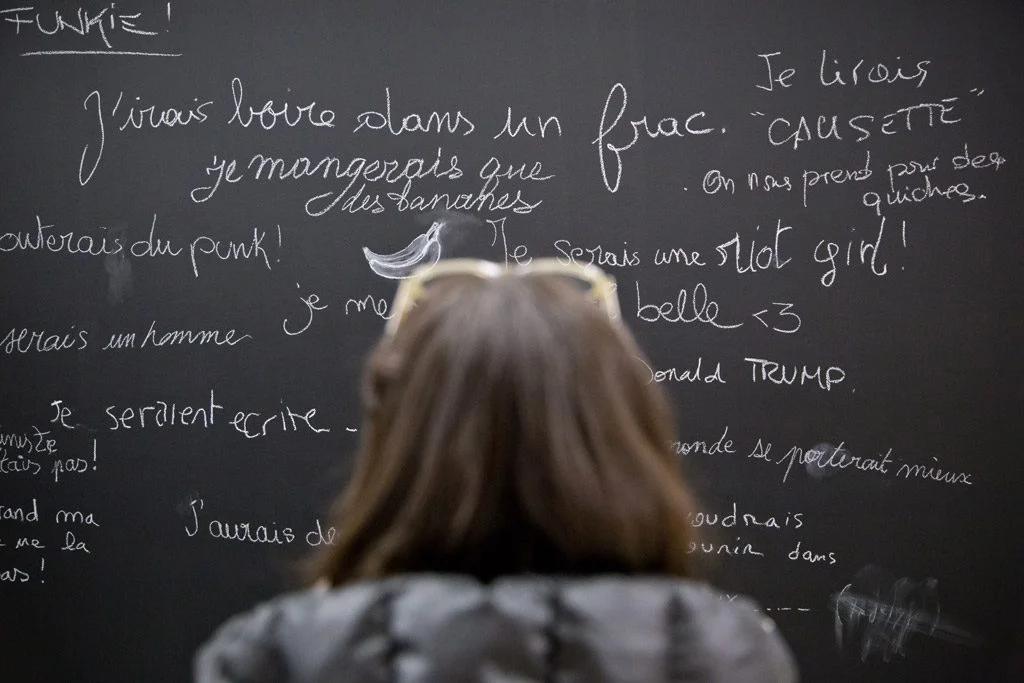 FUNKIE!
J'irais boire dans un frac.
je mangerais que
des bananes
Je lirais
"CAUSETTE"
. On nous prend pour des
quiches.
outerais du punk!
Je serais une riot girl!
je me belle <3
serais un homme
onald TRUMP.
Je seraient ecrire -
niste
rais pas!
monde se porterait mieux
rand ma
me la
as!
J'aurais de
oudrais
ourir dans